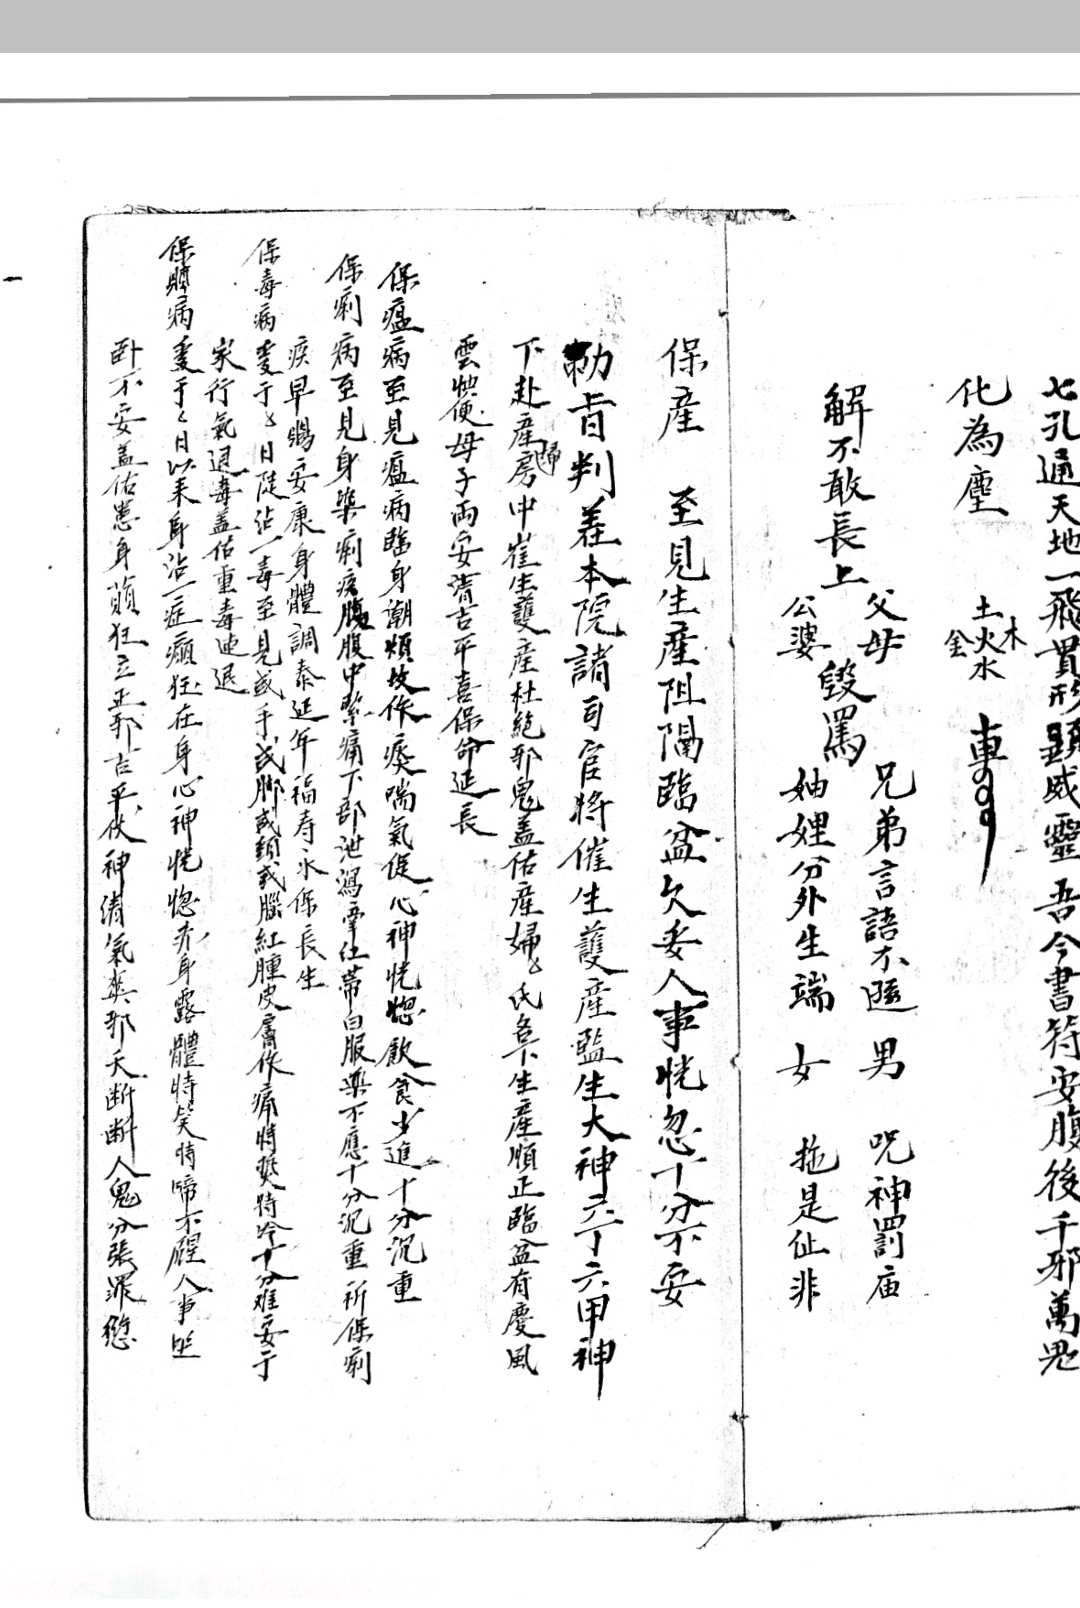 七孔通天地一飛貫形顕威靈 吾今書符安腹後千邪萬鬼
化為塵 土 金木火水
解不敢長上 父母 公婆 毀罵 兄弟言語不遜 男 咒神罰庙
妯娌分外生端 女 拖是仩非
保產 至見生產阻隔臨盆欠委人事恍忽十分不安
勅旨判差本院諸司官将催生護產監生大神六丁六甲神
下赴產房中崔生護產杜絶邪鬼盖佑產婦々氏各下生產順正臨盆有慶風
雲快便母子両安清吉平喜保命延長
保瘟病至見瘟病臨身潮煩故作痰喘氣促心神恍惚飲食少進十分沉重
保痢病至見身染痢疾腹中緊痛下部泄瀉幸红帶白服藥不應十分沉重祈保痢
疾早賜安康身體調泰延年福寿永保長生
保毒病憂于々日陡沾一毒至見或手或脚或頸或腦紅腫皮膚作痛時熱時冷十分难安于
家行氣退毒盖佑重毒速退
保癲病憂于々日以来身沾一症癲狂在身心神恍惚赤身露體時笑時啼不醒人事坐
卧不安盖佑患身顛狂立正邪古平伏神清氣爽邪天断断人鬼分張罪愆